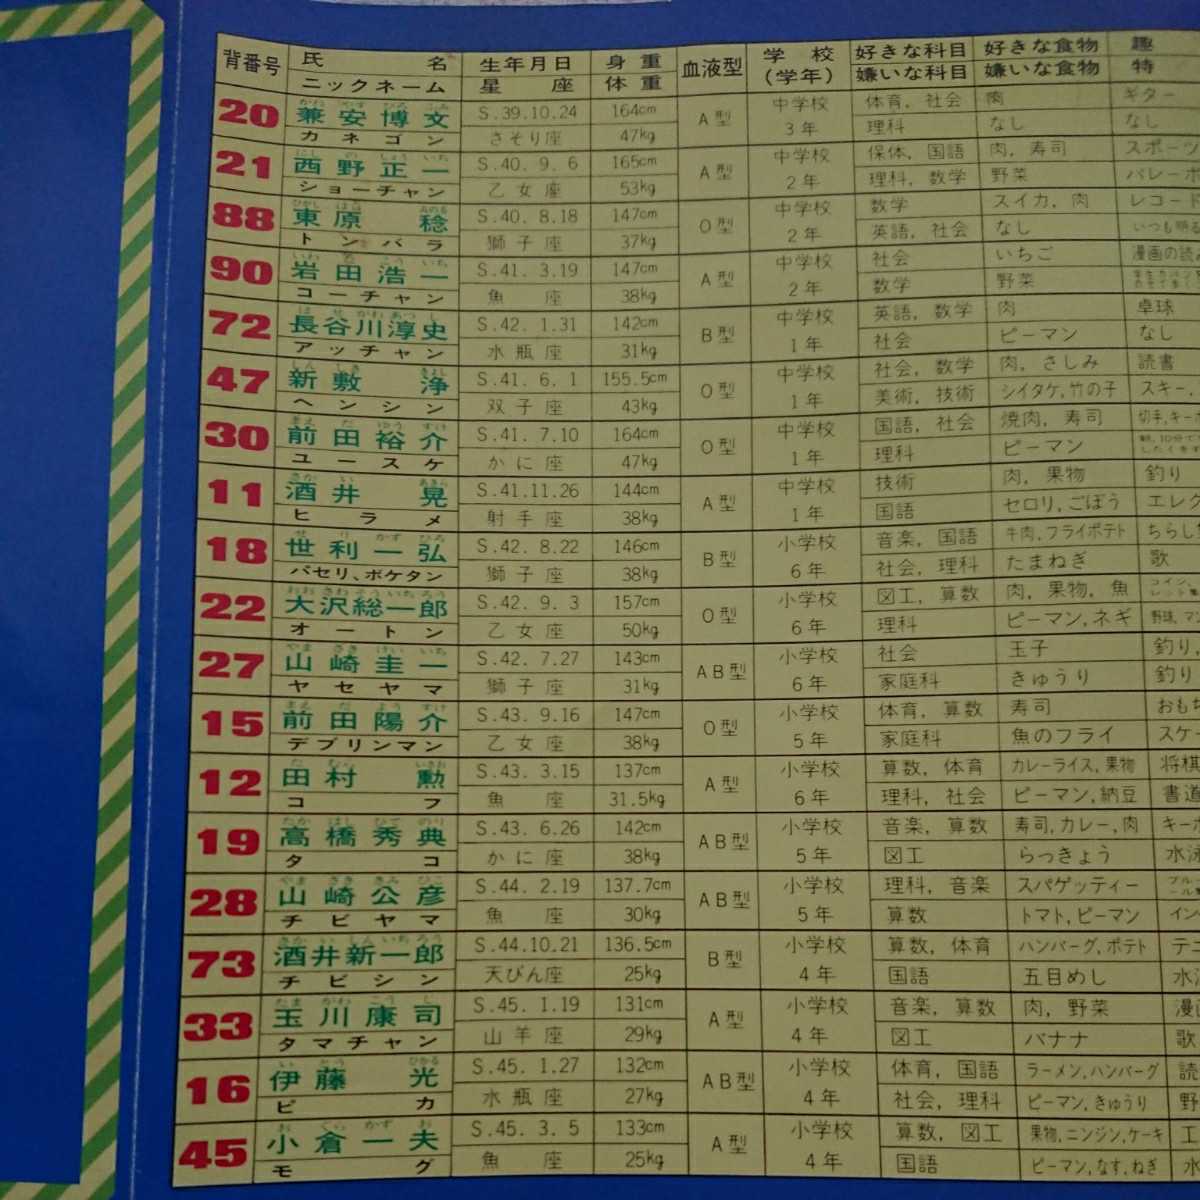 背番号 氏名 生年月日 身重 血液型 学校 好きな科目 好きな食物 趣
ニックネーム 星座 体重 (学年) 嫌いな科目 嫌いな食物 特
20 兼安博文 S.39.10.24 164cm A型 中学校 体育, 社会 肉 ギター
カネゴン さそり座 47kg 3年 理科 なし なし
21 西野正一 S.40. 9. 6 165cm A型 中学校 保体, 国語 肉, 寿司 スポーツ
ショーチャン 乙女座 53kg 2年 理科, 数学 野菜 バレーボ
88 東原稔 S.40. 8.18 147cm O型 中学校 数学 スイカ, 肉 レコード
トンバラ 獅子座 37kg 2年 英語, 社会 なし いつも明る
90 岩田浩一 S.41. 3.19 147cm A型 中学校 社会 いちご 漫画の読み
コーチャン 魚座 38kg 2年 数学 野菜
72 長谷川淳史 S.42. 1.31 142cm B型 中学校 英語, 数学 肉 卓球
アッチャン 水瓶座 31kg 1年 社会 ピーマン なし
47 新敷浄 S.41. 6. 1 155.5cm O型 中学校 社会, 数学 肉, さしみ 読書
ヘンシン 双子座 43kg 1年 美術, 技術 シイタケ,竹の子 スキー,
30 前田裕介 S.41. 7.10 164cm O型 中学校 国語, 社会 焼肉, 寿司 切手,キー
ユースケ かに座 47kg 1年 理科 ピーマン
11 酒井晃 S.41.11.26 144cm A型 中学校 技術 肉, 果物 釣り
ヒラメ 射手座 38kg 1年 国語 セロリ,ごぼう エレク
18 世利一弘 S.42. 8.22 146cm B型 小学校 音楽, 国語 牛肉,フライポテト ちらし
パセリ、ポケタン 獅子座 38kg 6年 社会, 理科 たまねぎ 歌
22 大沢総一郎 S.42. 9. 3 157cm O型 小学校 図工, 算数 肉, 果物, 魚
オートン 乙女座 50kg 6年 理科 ピーマン,ネギ 野球, マン
27 山崎圭一 S.42. 7.27 143cm AB型 小学校 社会 玉子 釣り,
ヤセヤマ 獅子座 31kg 6年 家庭科 きゅうり 釣り
15 前田陽介 S.43. 9.16 147cm O型 小学校 体育, 算数 寿司 おもち
デブリンマン 乙女座 38kg 5年 家庭科 魚のフライ スケー
12 田村勲 S.43. 3.15 137cm A型 小学校 算数, 体育 カレーライス, 果物 将棋
コフ 魚座 31.5kg 6年 理科, 社会 ピーマン,納豆 書道
19 高橋秀典 S.43. 6.26 142cm AB型 小学校 音楽, 算数 寿司,カレー,肉 キーホ
タコ かに座 38kg 5年 図工 らっきょう 水泳
28 山崎公彦 S.44. 2.19 137.7cm AB型 小学校 理科, 音楽 スパゲッティー
チビヤマ 魚座 30kg 5年 算数 トマト,ピーマン イン
73 酒井新一郎 S.44.10.21 136.5cm B型 小学校 算数, 体育 ハンバーグ,ポテト テニ
チビシン 天びん座 25kg 4年 国語 五目めし 水泳
33 玉川康司 S.45. 1.19 131cm A型 小学校 音楽, 算数 肉, 野菜 漫画
タマチャン 山羊座 29kg 4年 図工 バナナ 歌
16 伊藤光 S.45. 1.27 132cm AB型 小学校 体育, 国語 ラーメン,ハンバーグ 読
ピカ 水瓶座 27kg 4年 社会, 理科 ピーマン,きゅうり 野
45 小倉一夫 S.45. 3. 5 133cm A型 小学校 算数, 図工 果物,ニンジン,ケーキ 工
モグ 魚座 25kg 4年 国語 ピーマン,なす,ねぎ 水